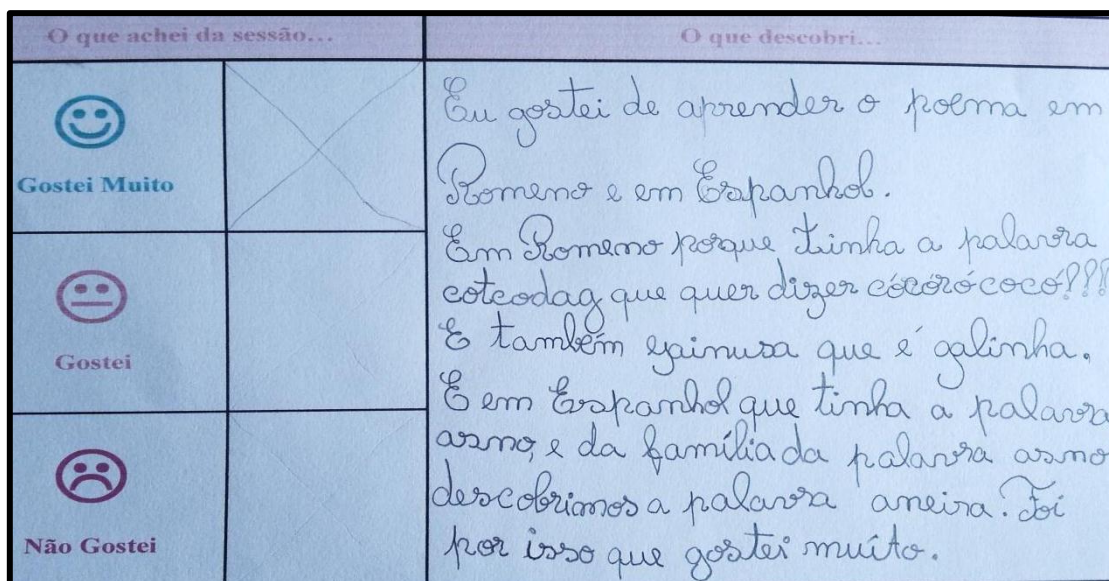 O que achei da sessão...
O que descobri...
Gostei Muito
Gostei
Não Gostei
Eu gostei de aprender o poema em
Romeno e em Espanhol.
Em Romeno porque tinha a palavra
cotcodag que quer dizer cócórócocó!!!
E também gainusa que é galinha.
E em Espanhol que tinha a palavra
asno, e da família da palavra asno
descobrimos a palavra aneira. Foi
por isso que gostei muito.